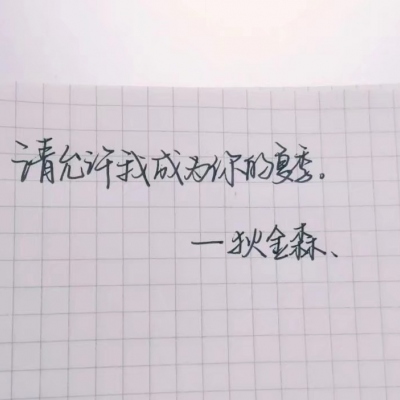 请允许我成为你的夏季。
—狄金森、